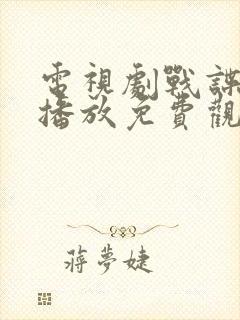 電視劇戰諜
播放免費觀
蔣夢婕